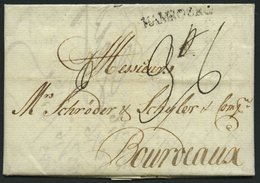 HAMBOURG
36
Messieurs
Mrs Schröder & Schyler & Comp.
Bourdeaux